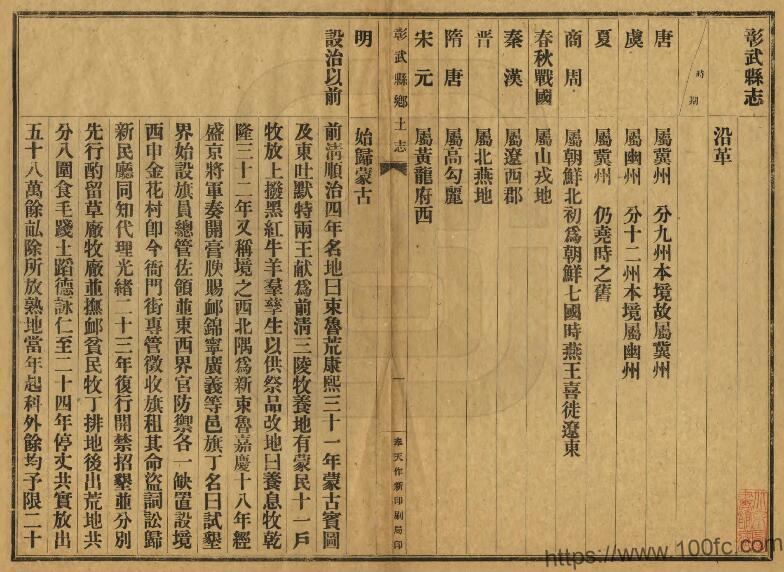 彰武縣志
時期
沿革
唐 屬冀州 分九州本境故屬冀州
虞 屬幽州 分十二州本境屬幽州
夏 屬冀州 仍堯時之舊
商周 屬朝鮮北初爲朝鮮七國時燕王喜徙遼東
春秋戰國 屬山戎地
秦漢 屬遼西郡
晋 屬北燕地
隋唐 屬高勾麗
宋元 屬黃龍府西
彰武縣鄉土志
一
奉天作新印刷局印
明 始歸蒙古
設治以前 前清順治四年名地曰東魯荒康熙三十一年蒙古賓圖
及東吐默特兩王献爲前清三陵牧養地有蒙民十一戶
牧放上撥黑紅牛羊羣孳生以供祭品改地曰養息牧乾
隆三十二年又稱境之西北隅爲新東魯嘉慶十八年經
盛京將軍奏開膏腴賜邺錦寧廣義等邑旗丁名曰試墾
界始設旗員總管佐領並東西界官防禦各一缺置設境
西申金花村卽今衙門街專管徵收旗租其命盜詞訟歸
新民廳同知代理光緒二十三年復行開禁招墾並分別
先行酌留草廠牧廠並撫邺貧民牧丁排地後出荒地共
分八圍食毛踐土蹈德詠仁至二十四年停丈共實放出
五十八萬餘畆除所放熟地當年起科外餘均予限二十
https://www.100fc.com